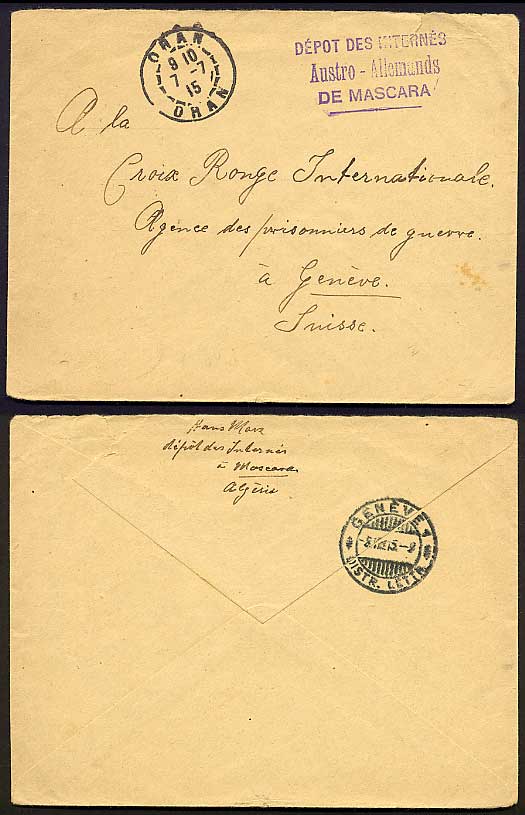 ORAN
9 10
7 -7
15
ORAN
DÉPOT DES INTERNÉS
Austro - Allemands
DE MASCARA
A la
Croix Rouge Internationale.
Agence des prisonniers de guerre.
à Genève.
Suisse.
Hans Marx
dépôt des Internés
à Mascara
Algérie
GENÈVE 1
DISTR. LETTR.